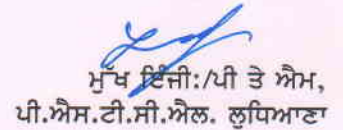 ਮੁੱਖ ਇੰਜੀ:/ਪੀ ਤੇ ਐਮ,
ਪੀ.ਐਸ.ਟੀ.ਸੀ.ਐਲ. ਲੁਧਿਆਣਾ